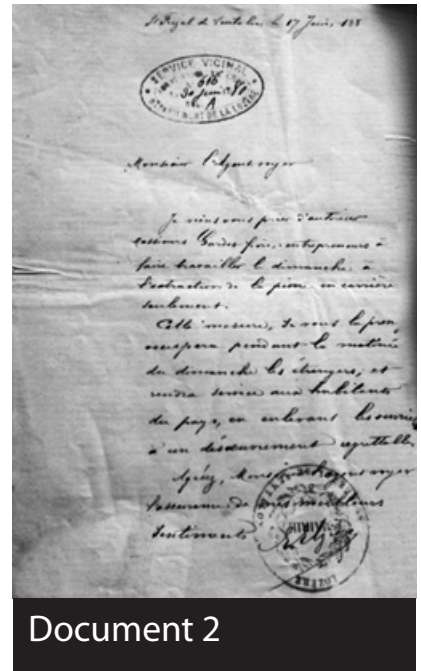 St Frézal de Ventalon, le 17 Juin, 188
SERVICE VICINAL
616
30 juin 81
A
DÉPARTEMENT DE LA LOZÈRE
Monsieur l'Agent voyer
Je viens vous prier d'autoriser
Messieurs Gardes frère, entrepreneurs à
faire travailler le dimanche, à
l'extraction de la pierre en carrière
seulement.
Cette mesure, je vous le prom
occupera pendant la matinée
du dimanche les étrangers, et
rendra service aux habitants
du pays, en enlevant les ouvriers
à un désœuvrement regrettable.
Agréez, Monsieur l'Agent voyer
l'assurance de mes meilleurs
Sentiments
MAIRIE
LOZÈRE
Document 2